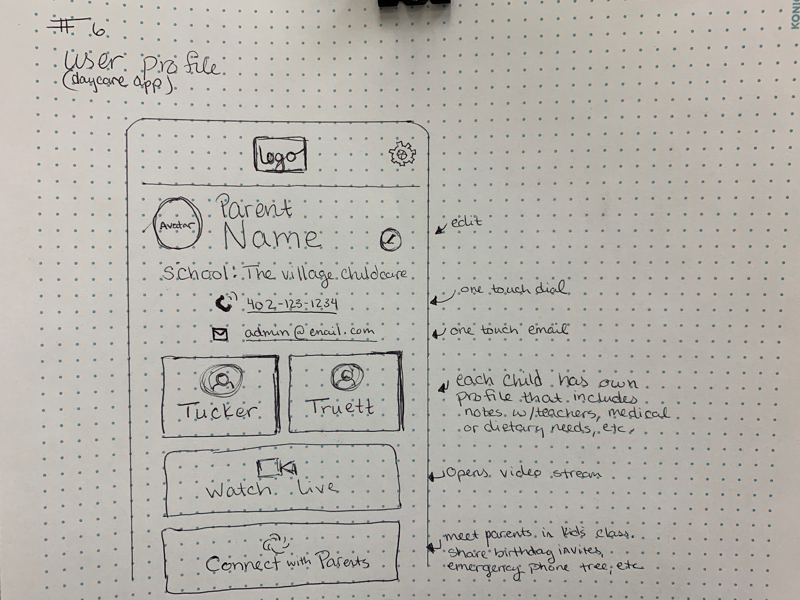 # 6.
User Profile
(daycare app).
Logo
Avatar
Parent
Name
edit
School: The Village Childcare
402-123-1234
one touch dial
admin@email.com
one touch email
Tucker
Truett
each child has own
profile that includes
notes w/teachers, medical
or dietary needs, etc.
Watch Live
Opens video stream
Connect with Parents
meet parents in kids class.
share birthday invites,
emergency phone tree, etc